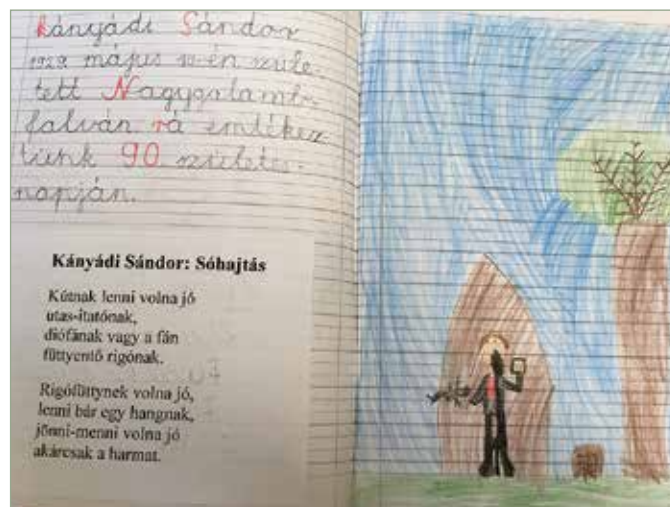 Kányádi Sándor
1929 május 10-én szüle-
tett Nagygalamb-
falván rá emlékez
tünk 90 születés-
napján.
Kányádi Sándor: Sóhajtás
Kútnak lenni volna jó
utas-itatónak,
diófának vagy a fán
füttyentő rigónak.
Rigófüttynek volna jó,
lenni bár egy hangnak,
jönni-menni volna jó
akárcsak a harmat.